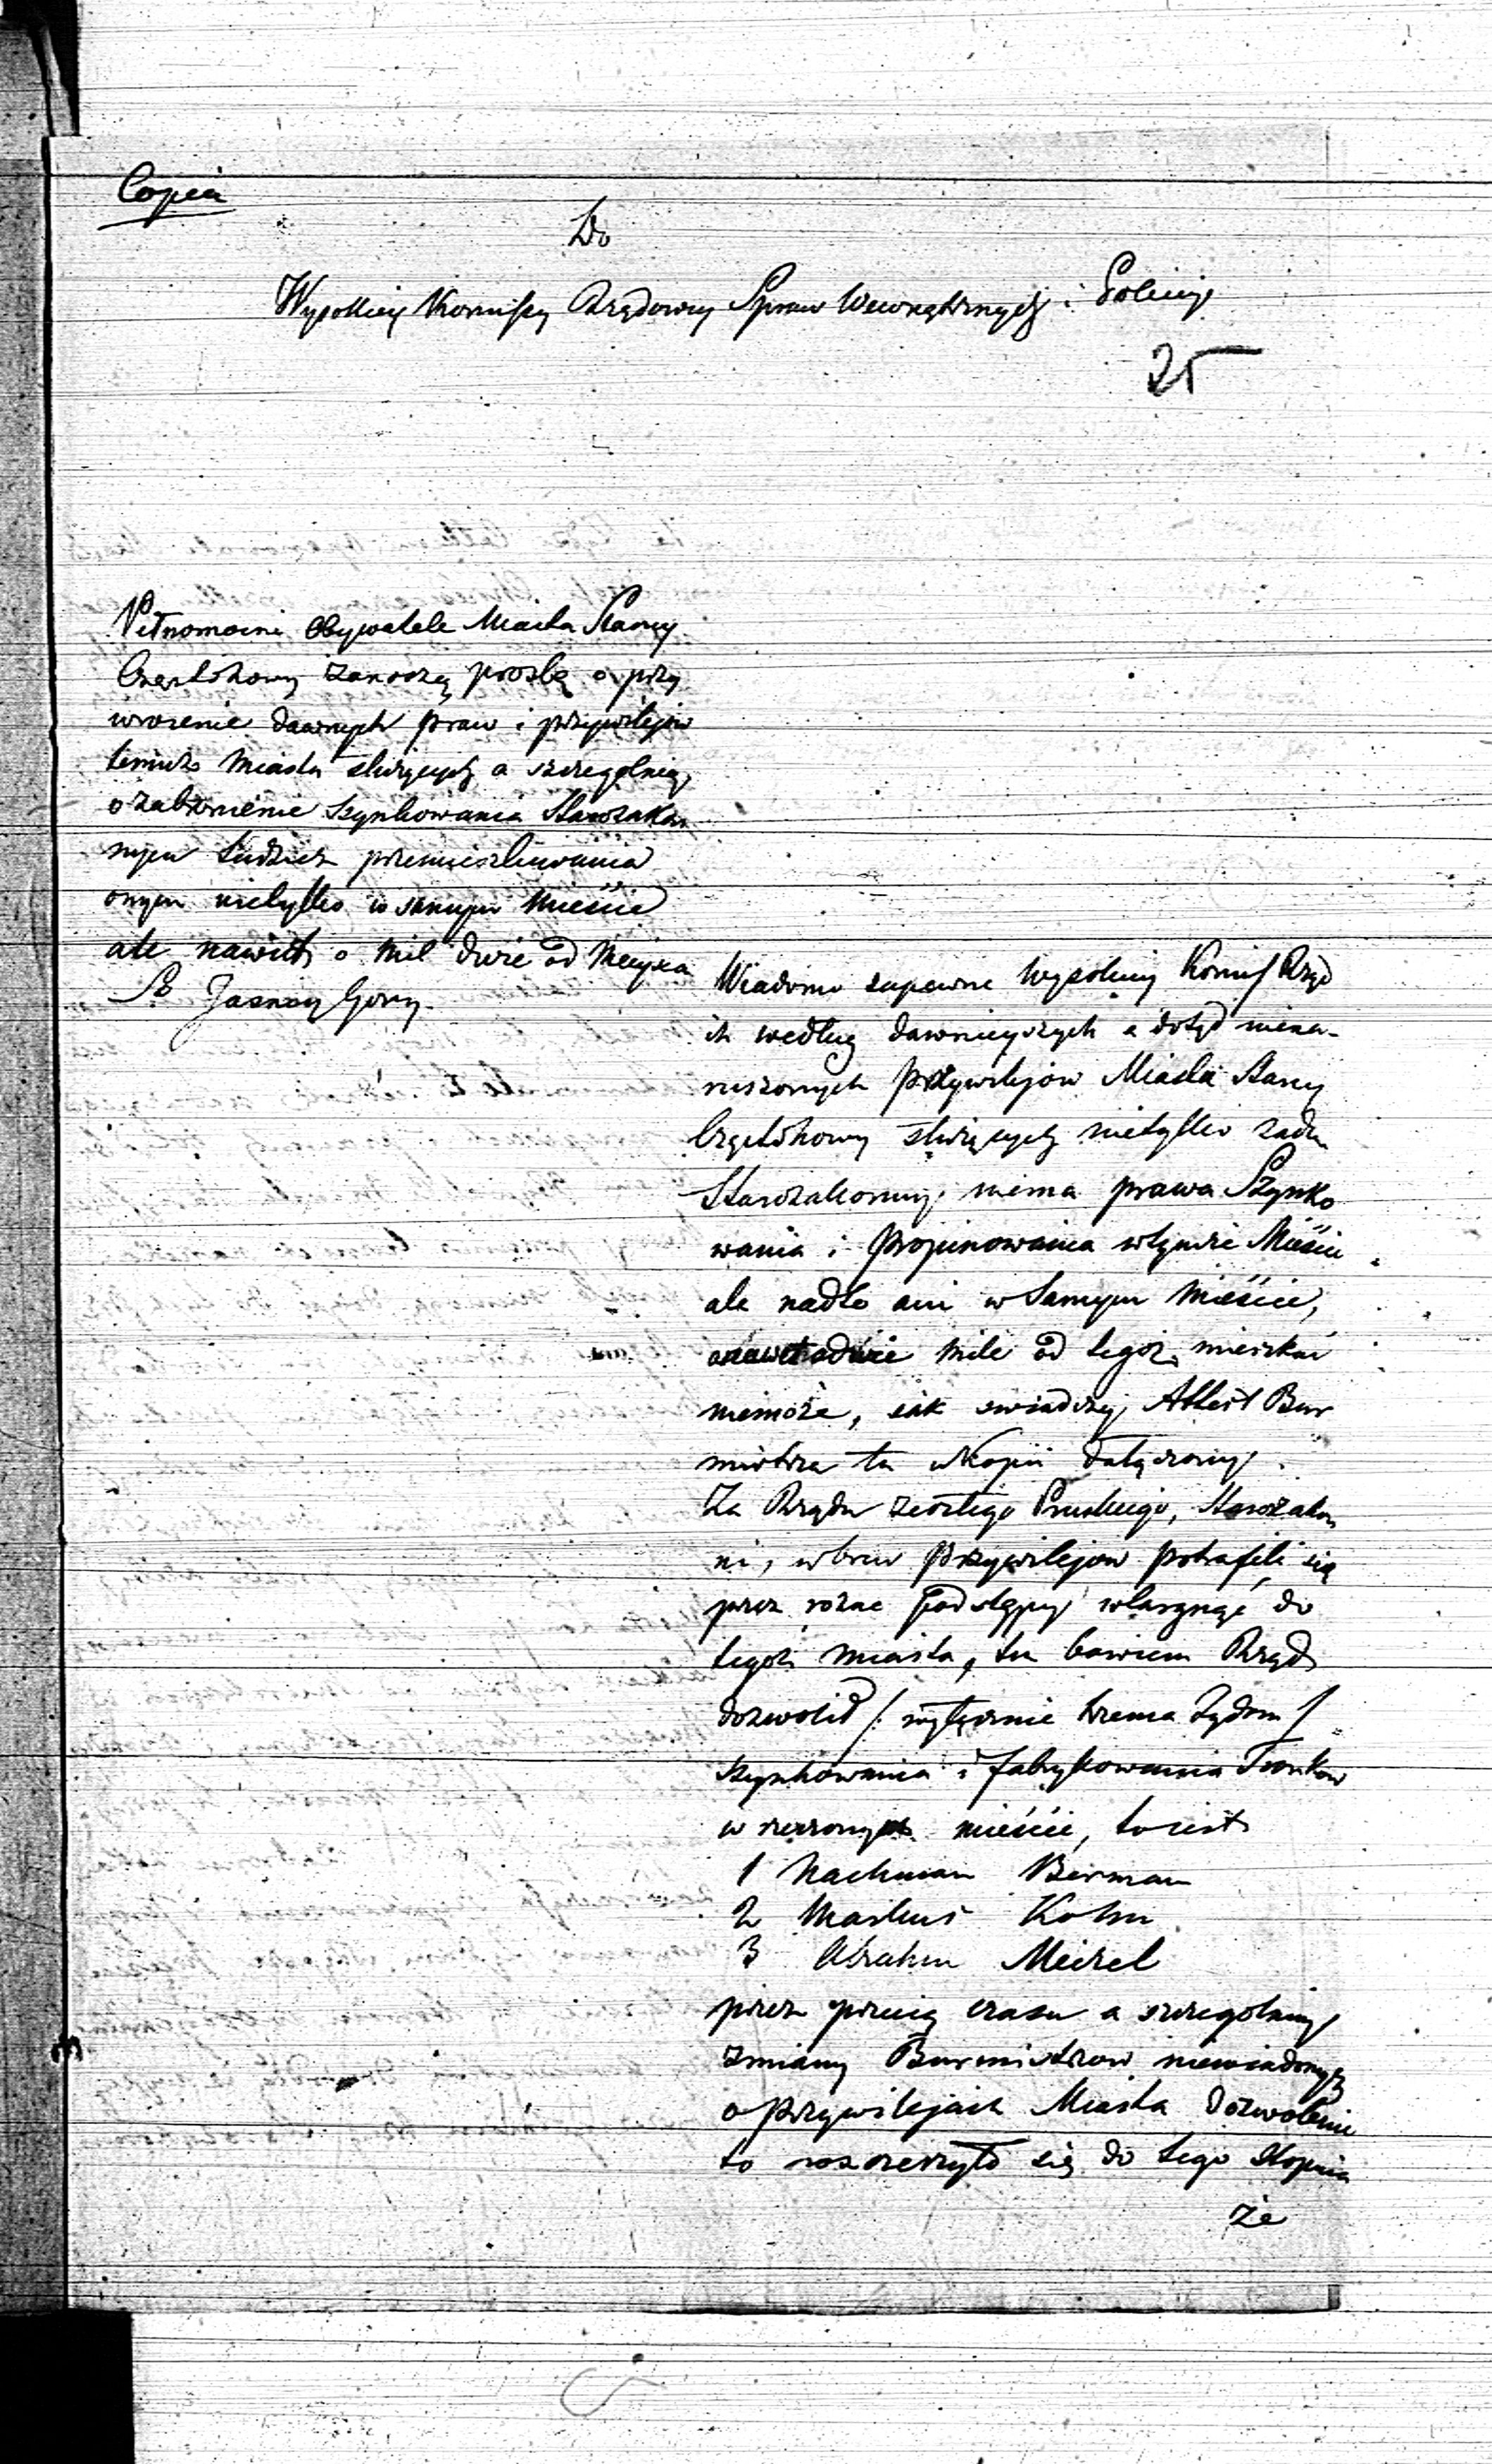 Copia
Do
Wysokiey Kommissyi Rządowey Spraw Wewnętrznych i Policyi
25
Pełnomocni Obywatele Miasta Starey
Częstochowy zanoszą prozbę o przy
wrocenie dawnych praw i przywilejów
temuż Miastu służących a szczególniey
o zabronienie szynkowania Starozakon
nym tudzież przemieszkiwania
onym nietylko w samym Mieście
ale nawet o mil dwie od Mieysca
S. Jasney Gory
Wiadomo zapewne Wysokiey Komiss Rząd
iż według dawnieyszych a dotąd niena-
ruszonych przywilejów Miastu Starey
Częstochowy służących nietylko żaden
Starozakonny niema prawa Szynko
wania i propinowania w tymże Mieście
ale nadto ani w Samym Mieście,
a nawet o dwie mile od tegoż mieszkać
niemoże, iak swiadczy Attest Bur
mistrza tu w kopii dołączony.
Za Rządu zeszłego Pruskiego, Starozakon
ni, wbrew przywilejow potrafili się
przez rożne podstępy wlasgnąć do
tegoż miasta, ten bowiem Rząd
dozwolił /: wyłącznie trzema Żydom /
szynkowania i fabrykowania Trunkow
w rzeczonym mieście, to iest
1 Nachman Berman
2 Markus Kohn
3 Abrahm Meizel
przez przeciąg czasu a szczególniey
zmiany Burmistrzow niewiadomych
o przywilejach Miasta dozwolenie
to rozszerzyło się do tego stopnia
że